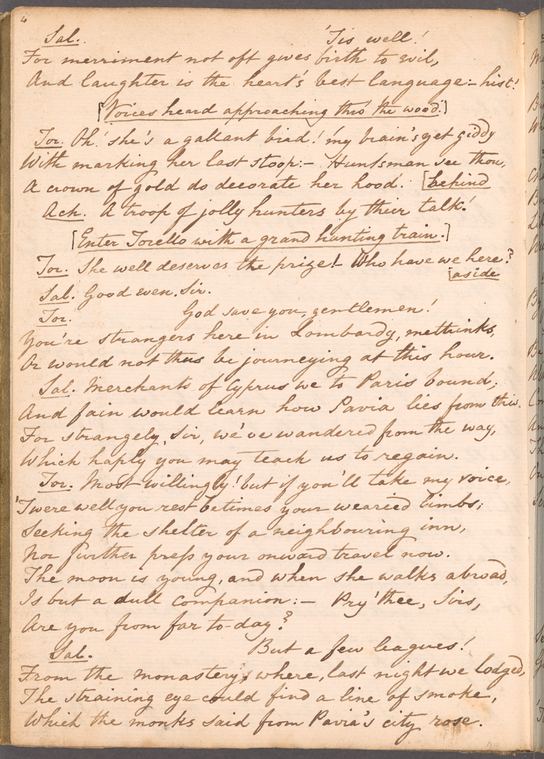 4
Sal. 'Tis well!
For merriment not oft gives birth to evil,
And laughter is the heart's best language:- hist!
[Voices heard approaching thro' the wood.]
Tor. Oh! she's a gallant bird! my brain's yet giddy
With marking her last stoop:- Huntsman see thou,
A crown of gold do decorate her hood. [behind
Ach. A troop of jolly hunters by their talk!
[Enter Torello with a grand hunting train.]
Tor. She well deserves the prize! Who have we here?
[aside
Sal. Good even, Sir.
Tor. God save you, gentlemen!
You're strangers here in Lombardy, methinks,
Or would not thus be journeying at this hour.
Sal. Merchants of Cyprus we to Paris bound;
And fain would learn how Pavia lies from this.
For strangely, Sir, we've wandered from the way,
Which haply you may teach us to regain.
Tor. Most willingly! but if you'll take my voice,
'Twere well you rest betimes your wearied limbs;
Seeking the shelter of a neighbouring inn,
Nor further press your onward travel now.
The moon is young, and when she walks abroad,
Is but a dull companion:- Pry'thee, Sirs,
Are you from far to-day?
Sal. But a few leagues!
From the monastery, where, last night we lodged,
The straining eye could find a line of smoke,
Which the monks said from Pavia's city rose.